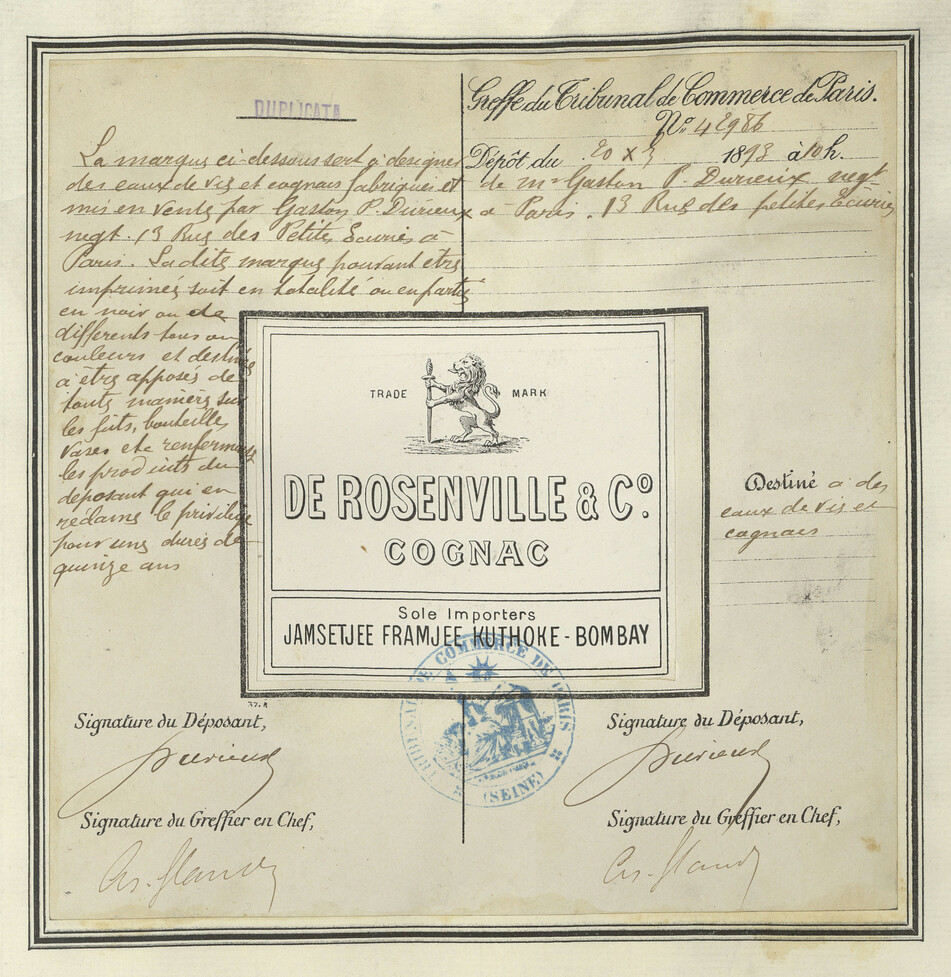 DUPLICATA
La marque ci-dessous sert à designer
des eaux de vie et cognacs fabriqués et
mis en vente par Gaston P. Durieux
negt. 13 Rue des Petites Ecuries à
Paris. La dite marque pouvant etre
imprimée soit en totalité ou en partie
en noir ou de
differents tons ou
couleurs et destinée
à être apposée de
toute manière sur
les futs, bouteilles
vases etc renfermant
les produits du
déposant qui en
réclame le privilège
pour une durée de
quinze ans
Greffe du Tribunal de Commerce de Paris.
No. 42986
Dépôt du 20 X 1893 à 10 h.
de mr Gaston P. Durieux negt
à Paris. 13 Rue des petites Ecuries
TRADE MARK
DE ROSENVILLE & Co.
COGNAC
Sole Importers
JAMSETJEE FRAMJEE KUTHOKE - BOMBAY
Destiné à des
eaux de vie et
cognacs
TRIBUNAL DE COMMERCE DE PARIS
(SEINE)
37. R
Signature du Déposant,
Durieux
Signature du Greffier en Chef,
Signature du Déposant,
Durieux
Signature du Greffier en Chef,